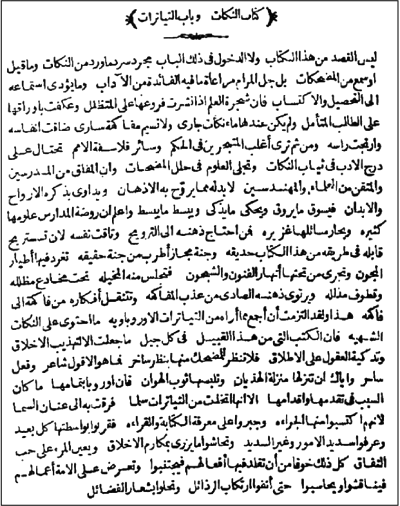 كتاب النكات وباب التياترات
ليس القصد من هذا الكتاب ولا الدخول فى ذلك الباب مجرد سرد ماورد من النكات وماقيل
أو سمع من المضحكات بل جل المرام مراعاة ما فيه الفائدة من الآداب ومايؤدى استماعه
الى التحصيل والاكتساب فان شجرة العلم اذا نشرت فروعها على المتظلل وعكفت باوراقها
على الطالب المتأمل ولم يكن عندها ماء نكات جارى ولا نسيم مفاكهة سارى ضاقت أنفاسه
وارتجت راسه ومن ثم ترى أغلب المتبحرين فى الحكم وسائر فلاسفة الامم تحتال على
درج الادب فى ثياب النكات وتجلى العلوم فى حلل المضحكات وان المفلق من المدرسين
والمتقن من العلماء والمهندسين لابد له مما يروح به الاذهان ويداوى بذكره الارواح
والابدان فيسوق مايروق ويحكى مايذكى ويبسط مايبسط واعلم ان روضة المدارس علومها
كثيره وبحار مسائلها غزيره فمن احتاج ذهنه الى الترويح وتاقت نفسه لان تستريح
قابله فى طريقه من هذا الكتاب حديقه وجنة مجاز أطرب من جنة حقيقه تغرد فيها أطيار
المجون وتجرى من تحتها أنهار الفنون والشجون فتجلس منه المخيله تحت مخادع مظلله
وقطوف مذلله ويرتوى ذهنه الصادى من عذب المفاكهه وتتنقل أفكاره من فاكهة الى
فاكهه هذا ولقد التزمت أن أجمع ما أراه من التياترات الاوروباويه مما احتوى على النكات
الشهيه فان الكتب التى من هذا القبيل فى كل جيل ما جعلت الا لتهذيب الاخلاق
وتذكية العقول على الاطلاق فلا تنظر لمضحك منها بنظر ساخر فما هو الا قول شاعر وفعل
ساحر واياك ان تنزلها منزلة الهذيان وتلبسها ثوب الهوان فان أوروبا بتمامها ما كان
السبب فى تقدمها واقدامها الا انها اتخذت من التياترات سلما فرقت به الى عنان السما
لانهم اكتسبوا منها الجراءه وجبروا على معرفة الكتابة والقراءه فقربوا بواسطتها كل بعيد
وعرفوا سديد الامور وغير السديد وتحاشوا ما يزرى بمكارم الاخلاق ويعين المرء على حب
النفاق كل ذلك خوفا من أن تقلد فيها أفعالهم فيجتنبوا وتعرض على الامة أعمالهم
فيناقشوا ويحاسبوا حتى أنفوا ارتكاب الرذائل وتحلوا بشعار الفضائل